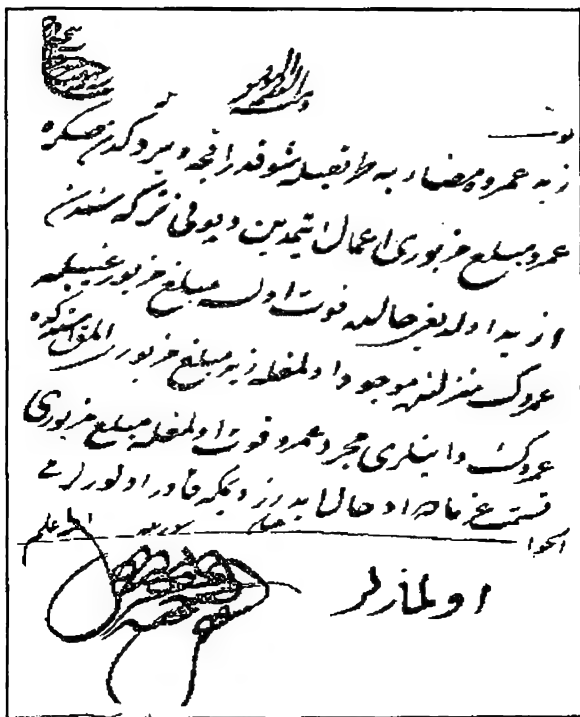 زيد عمروه مضاربه طريقيله شو قدر اقچه ويردكدن صكره
عمرو مبلغ مزبورى اعمال ايتمدين ديونى تركه سندن
ازيد اولديغى حالده فوت اولسه مبلغ مزبور عينيله
عمروك منزلنده موجود اولمغله زيد مبلغ مزبورى المق استدكده
عمروك داينلرى مجرد عمرو فوت اولمغله مبلغ مزبورى
قسمت غرمايه ادخال ايدرز ديمكه قادر اولورلر مى
الجواب الله اعلم
اولمازلر